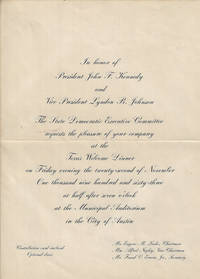 In honor of
President John F. Kennedy
and
Vice President Lyndon B. Johnson
The State Democratic Executive Committee
requests the pleasure of your company
at the
Texas Welcome Dinner
on Friday evening the twenty-second of November
One thousand nine hundred and sixty-three
at half after seven o'clock
at the Municipal Auditorium
in the City of Austin
Mr. Eugene M. Locke, Chairman
Mrs. Alfred Negley, Vice Chairman
Mr. Frank C. Erwin, Jr., Secretary
Optional dress